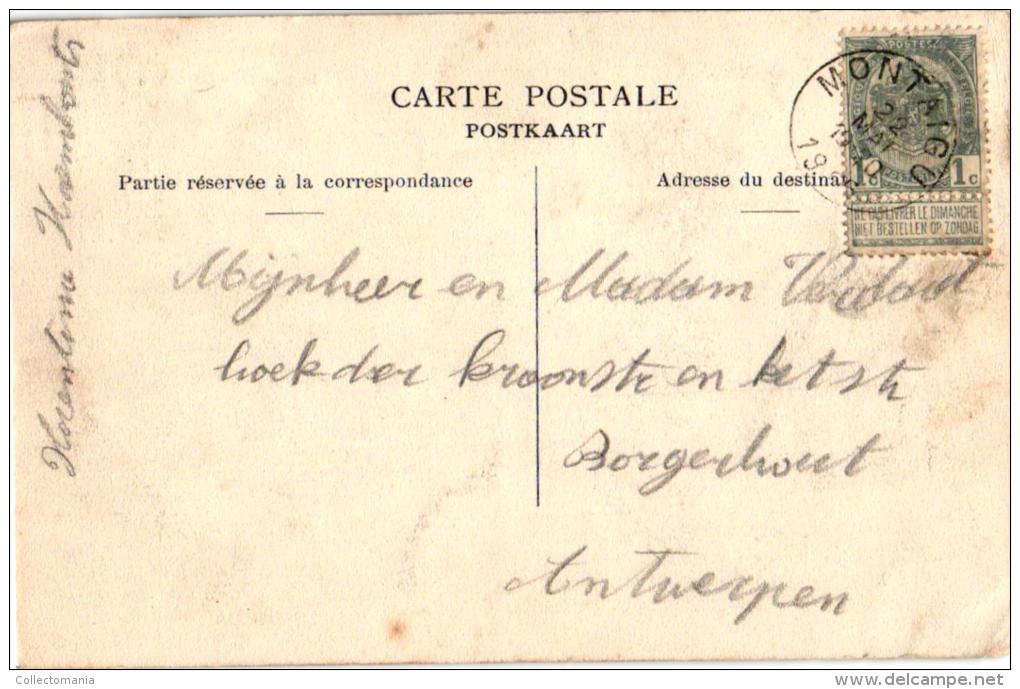 CARTE POSTALE
POSTKAART
Partie réservée à la correspondance
Adresse du destinat
MONTAIGU
22
MAI
19
POSTES
1c 1c
NE PAS LIVRER LE DIMANCHE
NIET BESTELLEN OP ZONDAG
Mijnheer en Madam
hoek der kroonstr en ketstr
Borgerhout
Antwerpen
Florentina
© Collectomania
delcampe.net